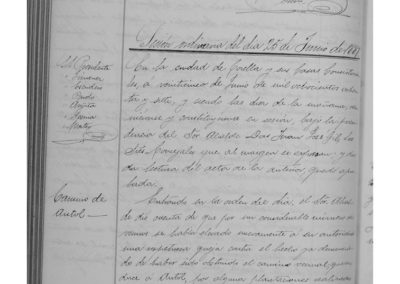 Sesión ordinaria del dia 25 de Junio de 1887
Sr Presidente
Jimenez
Escudero
Pardo
Mateo
En la ciudad de y sus Casas Consistoria
les, a veinticinco de Junio de mil ochocientos ochen
ta y siete, y siendo las diez de la mañana, se
reunieron y constituyeron en sesión, bajo la presi
dencia del Sor Alcalde Don Juan José Gil, los
Sres Concejales que al margen se expresan, y da
da lectura del acta de la anterior, quedó apro
bada.
Camino de
Autol
Entrando en la orden del dia, el Sor Alcal
de dió cuenta de que por un considerable número de
vecinos se habia elevado nuevamente a su autoridad
una respetuosa queja contra el hecho ya denuncia
do de haber sido obstruido el camino vecinal que con
duce a Autol, por algunas plantaciones realizadas